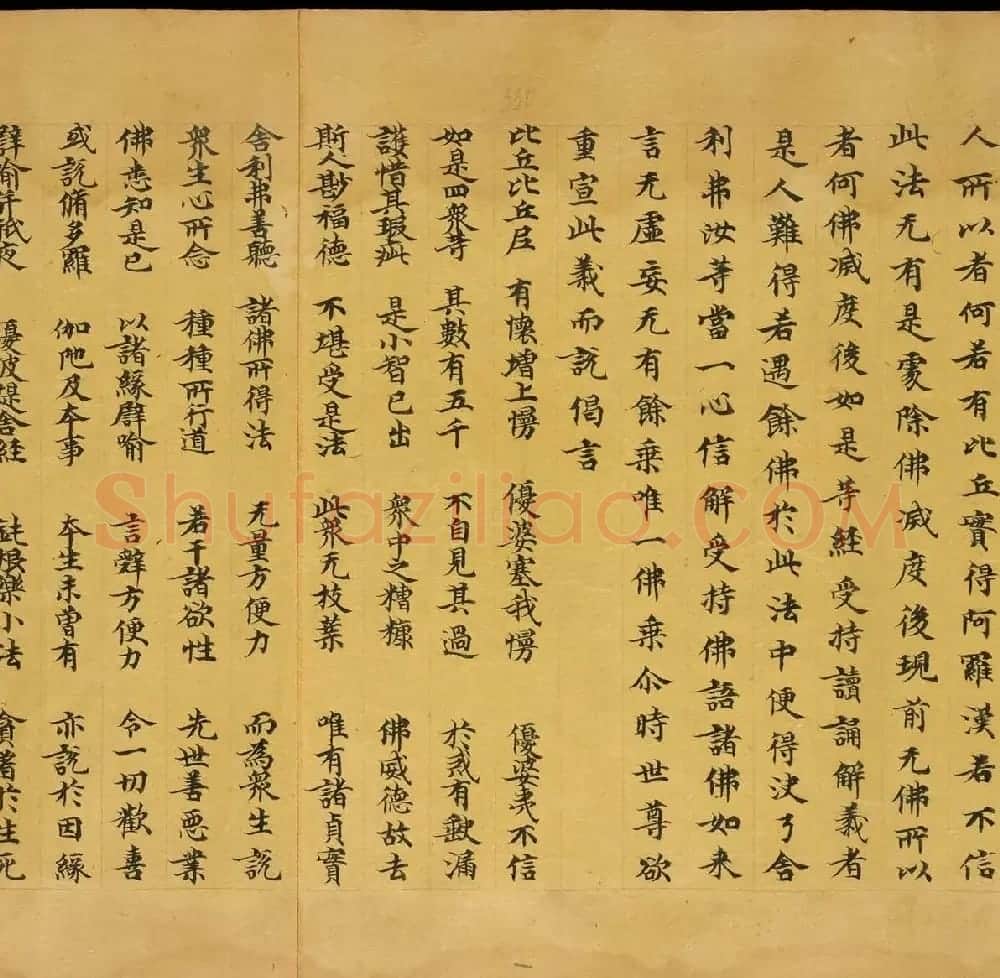 人所以者何若有比丘實得阿羅漢若不信
此法无有是處除佛滅度後現前无佛所以
者何佛滅度後如是等經受持讀誦解義者
是人難得若遇餘佛於此法中便得决了舍
利弗汝等當一心信解受持佛語諸佛如来
言无虛妄无有餘乘唯一佛乘尒時世尊欲
重宣此義而說偈言
比丘比丘尼 有懷增上慢 優婆塞我慢 優婆夷不信
如是四衆等 其數有五千 不自見其過 於戒有缺漏
護惜其瑕疵 是小智已出 衆中之糟糠 佛威德故去
斯人尠福德 不堪受是法 此衆无枝葉 唯有諸貞實
舍利弗善聽 諸佛所得法 无量方便力 而為衆生說
衆生心所念 種種所行道 若干諸欲性 先世善惡業
佛悉知是已 以諸緣譬喻 言辭方便力 令一切歡喜
或說脩多羅 伽陁及本事 本生未曾有 亦說於因緣
譬喻并祇夜 優波提舍經 鈍根樂小法 貪著於生死
Shufaziliao.COM